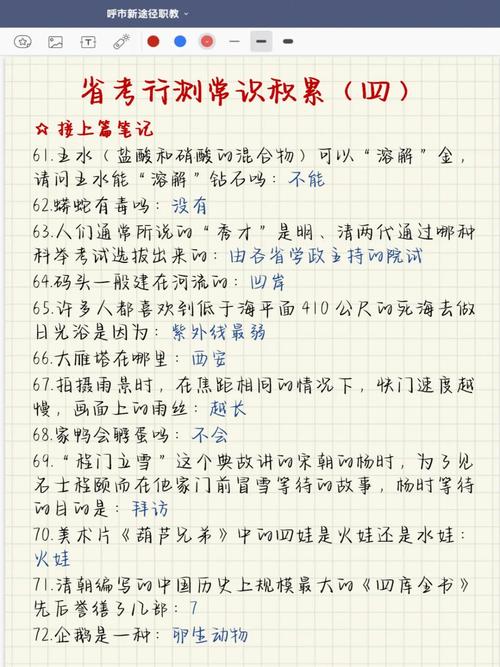 呼市新途径职教
省考行测常识积累(四)
☆ 接上篇笔记
61.王水(盐酸和硝酸的混合物)可以“溶解”金,
请问王水能“溶解”钻石吗: 不能
62.蟒蛇有毒吗: 没有
63.人们通常所说的“秀才”是明、清两代通过哪种
科举考试选拔出来的: 由各省学政主持的院试
64.码头一般建在河流的: 凹岸
65.许多人都喜欢到低于海平面410公尺的死海去做
日光浴是因为: 紫外线最弱
66.大雁塔在哪里: 西安
67.拍摄雨景时,在焦距相同的情况下,快门速度越
慢,画面上的雨丝: 越长
68.家鸭会孵蛋吗: 不会
69.“程门立雪”这个典故讲的宋朝的杨时,为了见
名士程颐而在他家门前冒雪等待的故事,杨时等待
的目的是: 拜访
70.美术片《葫芦兄弟》中的四娃是火娃还是水娃:
火娃
71.清朝编写的中国历史上规模最大的《四库全书》
先后誊缮了几部: 7
72.企鹅是一种: 卵生动物